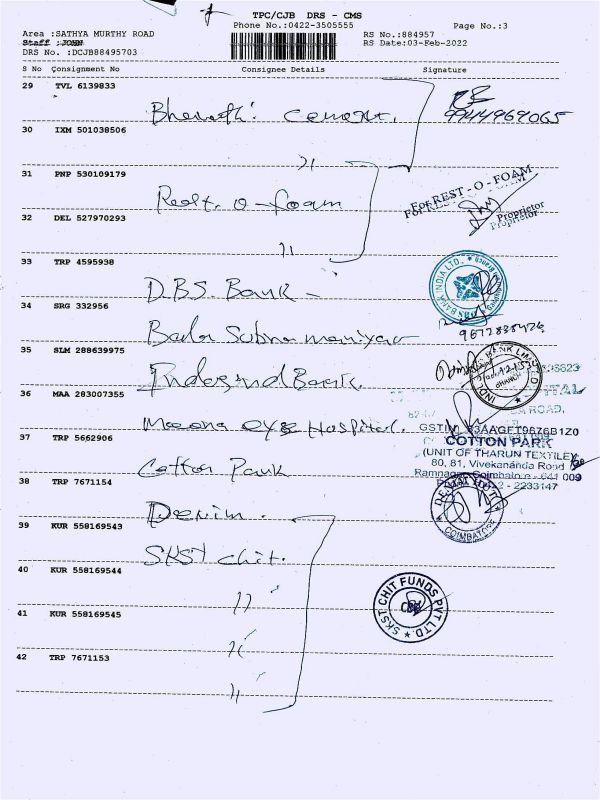 TPC/CJB DRS - CMS
Phone No.:0422-3505555
Page No.:3
Area :SATHYA MURTHY ROAD
RS No.:884957
Staff :JOHN
RS Date:03-Feb-2022
DRS No. :DCJB88495703
S No Consignment No Consignee Details Signature
29 TVL 6139833
Bharathi cement.
9944969065
30 IXM 501038506
"
31 PNP 530109179
Rest. O - foam
For REST - O - FOAM
Proprietor
32 DEL 527970293
"
33 TRP 4595938
D.B.S. Bank -
34 SRG 332956
Bala Subramaniyan
35 SLM 288639975
IndusInd Bank
36 MAA 283007355
Meena eye Hospital.
ROAD,
37 TRP 5662906
Cotton Park
COTTON PARK
(UNIT OF THARUN TEXTILE)
80, 81, Vivekananda Road
Ramnagar, Coimbatore - 641 009
2233147
38 TRP 7671154
Denim.
COIMBATORE
39 KUR 558169543
SKST chit.
40 KUR 558169544
"
SKST CHIT FUNDS PVT LTD.
41 KUR 558169545
"
42 TRP 7671153
"